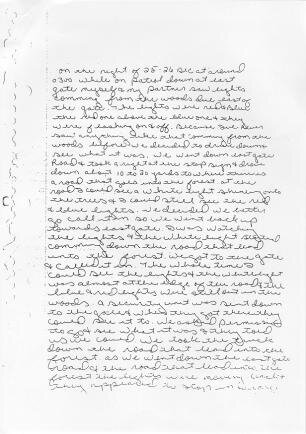 on the night of 25-26 Dec at around
0300 while on patrol down at east
gate myself and my partner saw lights
comming from the woods due east of
the gate. The lights were red & blue
the red one above the blue one & they
were flashing on & off. Because I've never
saw anything like that comming from the
woods before we decided to drive down &
see what it was. We went down east gate
Road & took a right at the stop sign & drove
down about 10 to 20 yards to where there is
a road that goes into the forest at the
road I could see a white light shining onto
the trees & I could still see the red
& blue lights. we decided we better
go call it in so we went back up
towards east gate. I was watching
the lights & the white light started
comming down the road that lead
into the forest. We got to the gate
& called it in. The whole time I
could see the lights & the white light
was almost at the edge of the road & the
blue and red lights were still out in the
woods. A security unit was sent down
to the gate & when they got there they
could see it to. We asked permission
to go & see what it was & they told
us we could. We took the truck
down the road that lead into the
forest. as we went down the east gate
road & the road that leads into the
forest the lights were moving back &
they appeared to stop in